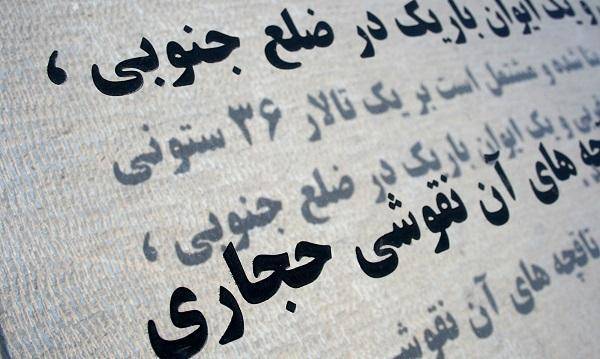 و یک ایوان باریک در ضلع جنوبی ،
بنا شده و مشتمل است بر یک تالار ۳۶ ستونی
و یک ایوان باریک در ضلع جنوبی ،
های آن نقوشی حجاری
تاقچه های آن نقوشی